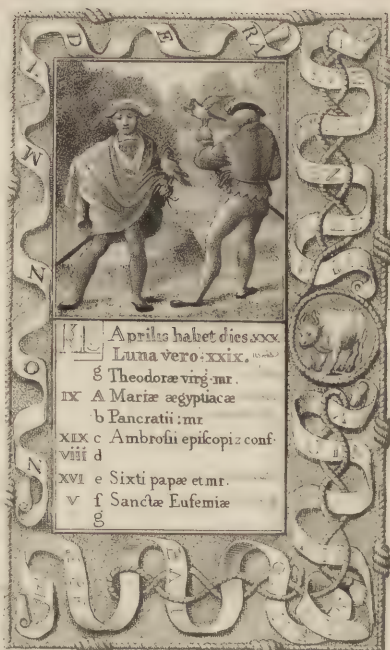 KL Aprilis habet dies .xxx.
Luna vero .xxix.
g Theodoræ virg. mr.
IX A Mariæ ægyptiacæ
b Pancratii : mr
XIX c Ambrosii episcopi : conf.
viii d
XVI e Sixti papæ et mr.
V f Sanctæ Eufemiæ
g